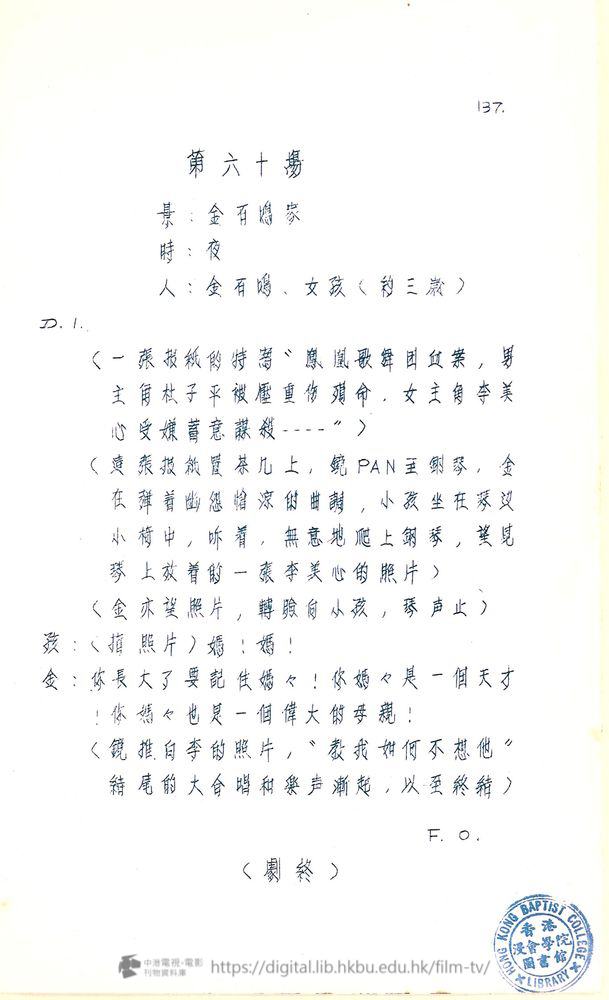 137.
第六十場
景：金有鳴家
時：夜
人：金有鳴、女孩（約三歲）
D.I.
（一張报紙的特寫“鳳凰歌舞团血案，男
主角杜子平被壓重伤殞命，女主角李美
心受嫌蓄意謀殺----”）
（這張报紙置茶几上，鏡PAN至鋼琴，金
在彈着幽怨悽涼的曲調，小孩坐在琴边
小椅中，听着，無意地爬上鋼琴，望見
琴上放着的一張李美心的照片）
（金亦望照片，轉臉向小孩，琴声止）
孩：（指照片）媽！媽！
金：你長大了要記住媽々！你媽々是一個天才
！你媽々也是一個偉大的母親！
（鏡推向李的照片，“教我如何不想他”
結尾的大合唱和樂声漸起，以至終結）
F.O.
（劇終）
HONG KONG BAPTIST COLLEGE
香港
浸會學院
圖書館
LIBRARY
中港電視·電影
刊物資料庫
https://digital.lib.hkbu.edu.hk/film-tv/